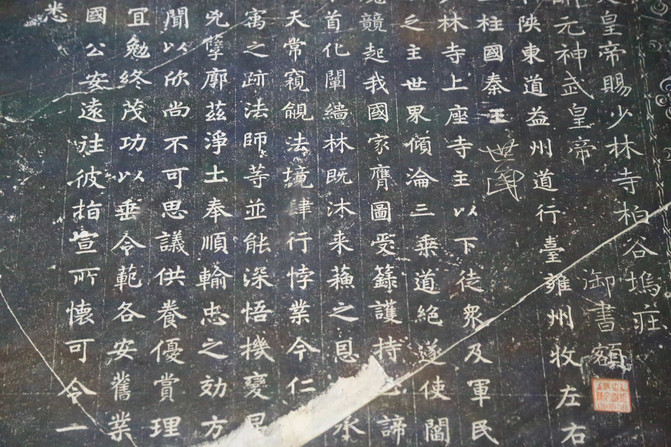 皇帝賜少林寺柏谷塢莊
御書額
開元神武皇帝
陝東道益州道行臺雍州牧左右
上柱國秦王世民
少林寺上座寺主以下徒眾及軍民
之主世界傾淪三乘道絕遂使閻
競起我國家膺圖受籙護持正諦
首化闡緇林既沐來蘇之恩
天常窺覦法境肆行悖業今仁
寓之跡法師等並能深悟機變早
兇孽廓茲淨土奉順輸忠之効方
聞以欣尚不可思議供養優賞理
宜勉終茂功以垂令範各安舊業
國公安遠往彼指宣所懷可令一
悉